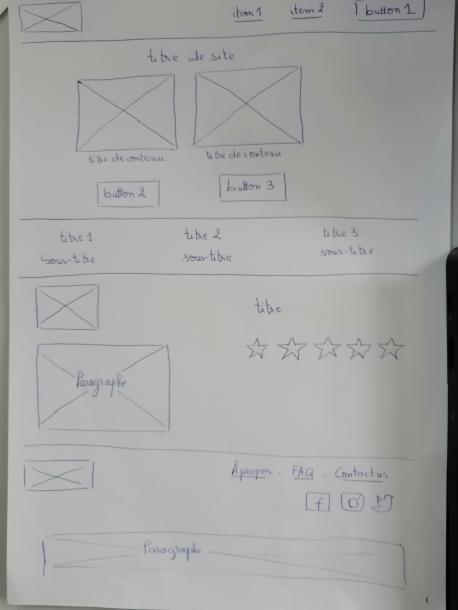 item 1 item 2 button 1
titre de site
titre de contenu titre de contenu
button 2 button 3
titre 1 titre 2 titre 3
sous-titre sous-titre sous-titre
titre
Paragraphe
À propos. FAQ. Contact us
f
Paragraphe
1